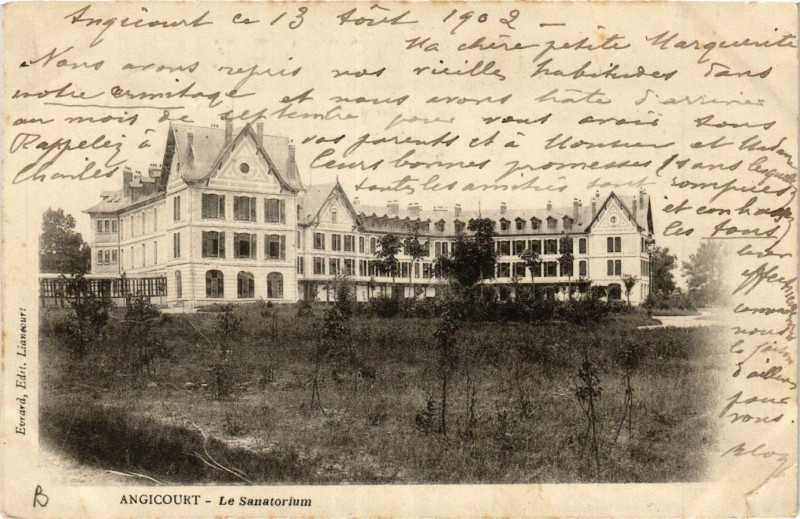 Angicourt ce 13 Août 1902 –
Ma chère petite Marguerite
Nous avons repris nos vieilles habitudes dans
notre ermitage et nous avons hâte d'arriver
au mois de septembre pour vous avoir tous
Rappelez à vos parents et à Monsieur et Madame
Charles leurs bonnes promesses (sans lesquelles
toutes les amitiés sont rompues
et
les tous
leur
nous
le
d'ailleurs
pour
vous.
Evrard, Edit. Liancourt
B
ANGICOURT - Le Sanatorium